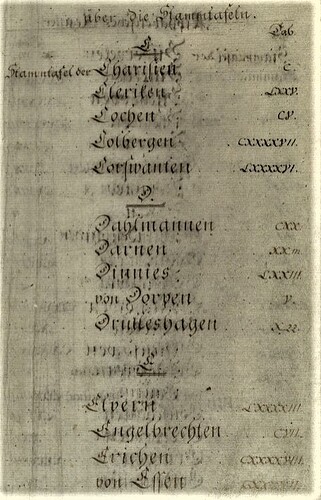 über die Stammtafeln.
Tab.
C.
Stammtafel der Charisien C.
Cleriken LXXV.
Cochen CV.
Colbergen CXXXXVII.
Corswanten LXXXXVI.
D.
Dahlmannen CXX.
Darnen XXIII.
Dinnies LXXIII.
von Dorpen V.
Drulleshagen
E.
Elvern LXXXXIII.
Engelbrechten CVII.
Erichen CXXXXVIII.
von Essen